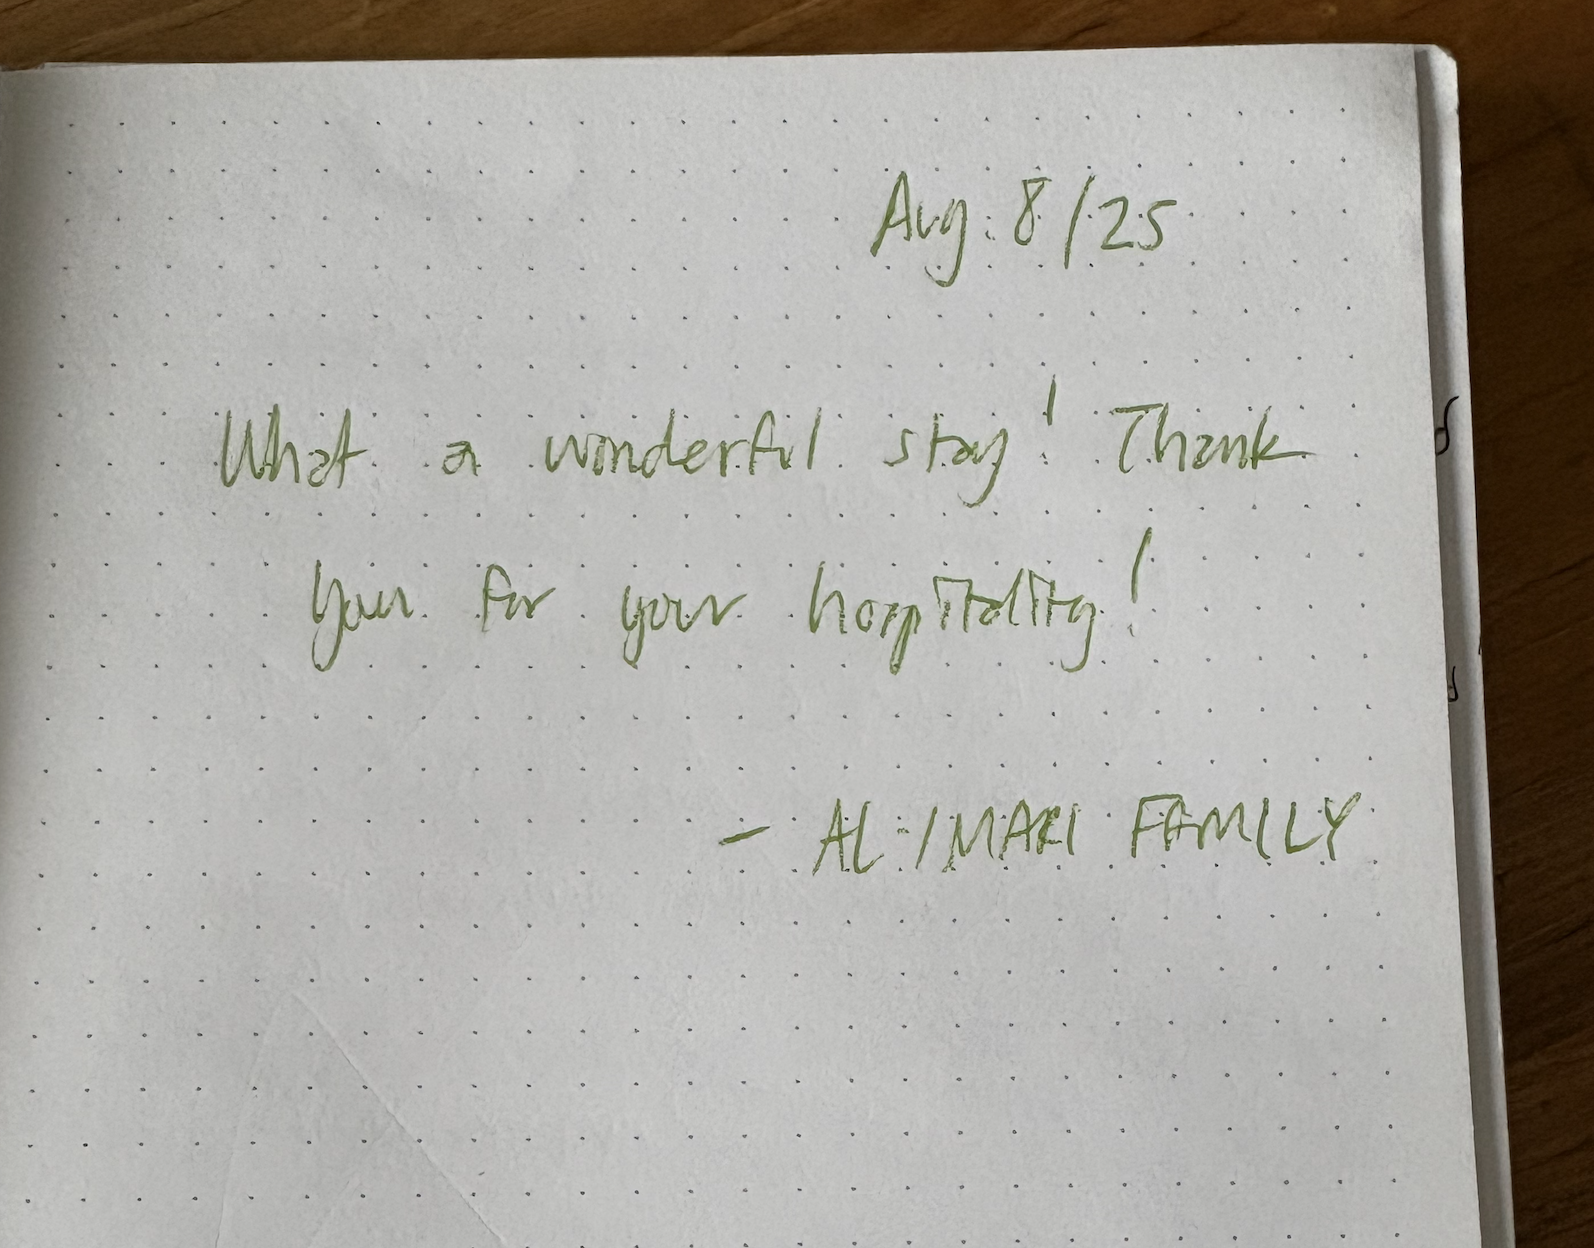 Aug. 8/25
What a wonderful stay! Thank
you for your hospitality!
- AL-IMARI FAMILY